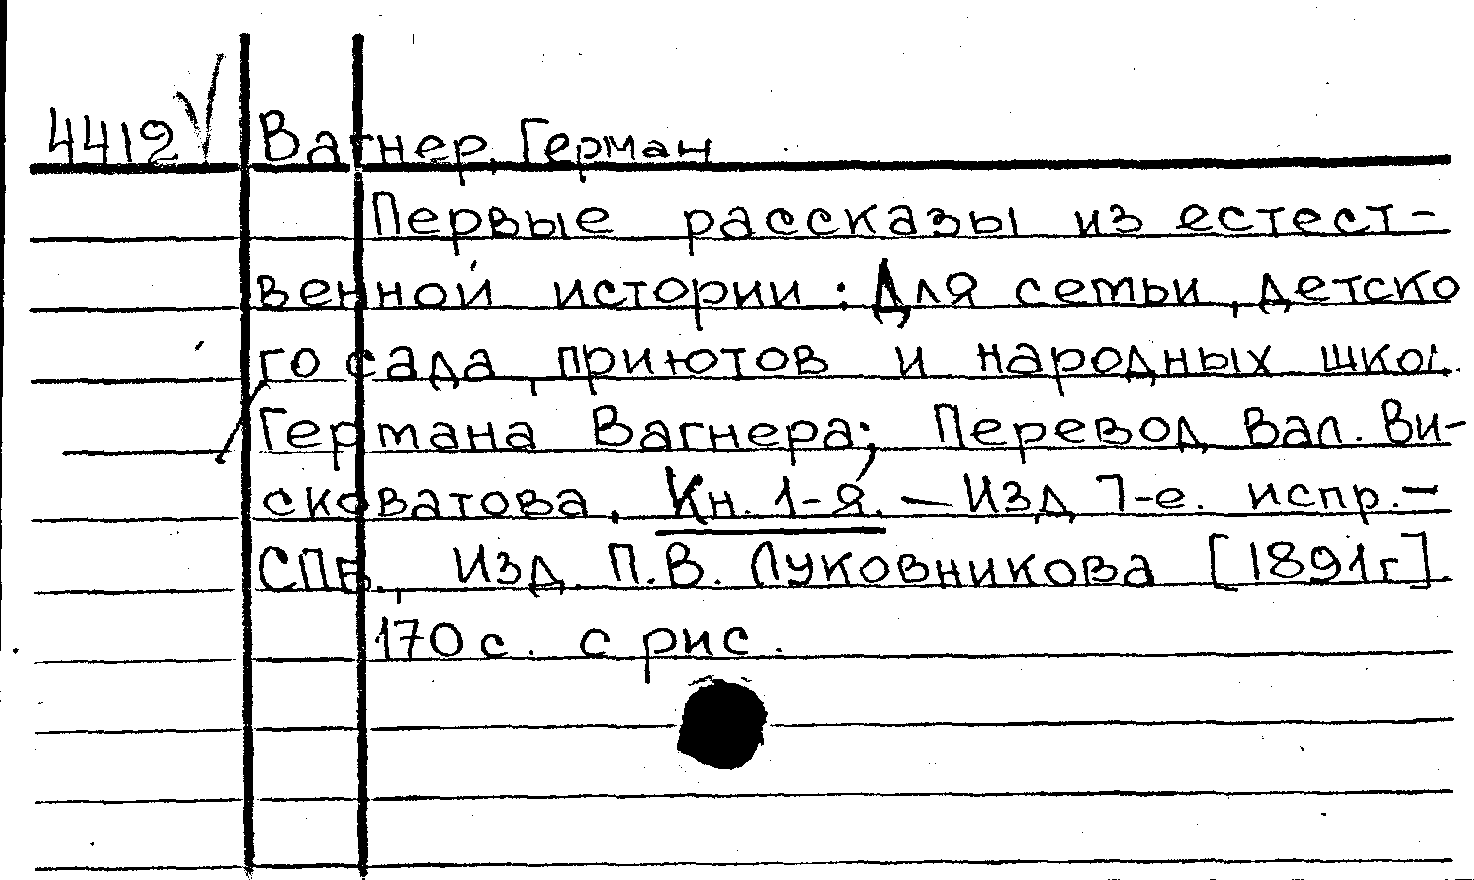 4412 Вагнер, Герман
Первые рассказы из естест-
венной истории : Для семьи, детско
го сада, приютов и народных школ.
Германа Вагнера; Перевод Вал. Ви-
сковатова. Кн. 1-я. — Изд 7-е. испр. —
СПБ., Изд. П.В. Луковникова [1891г]
170 с. с рис.